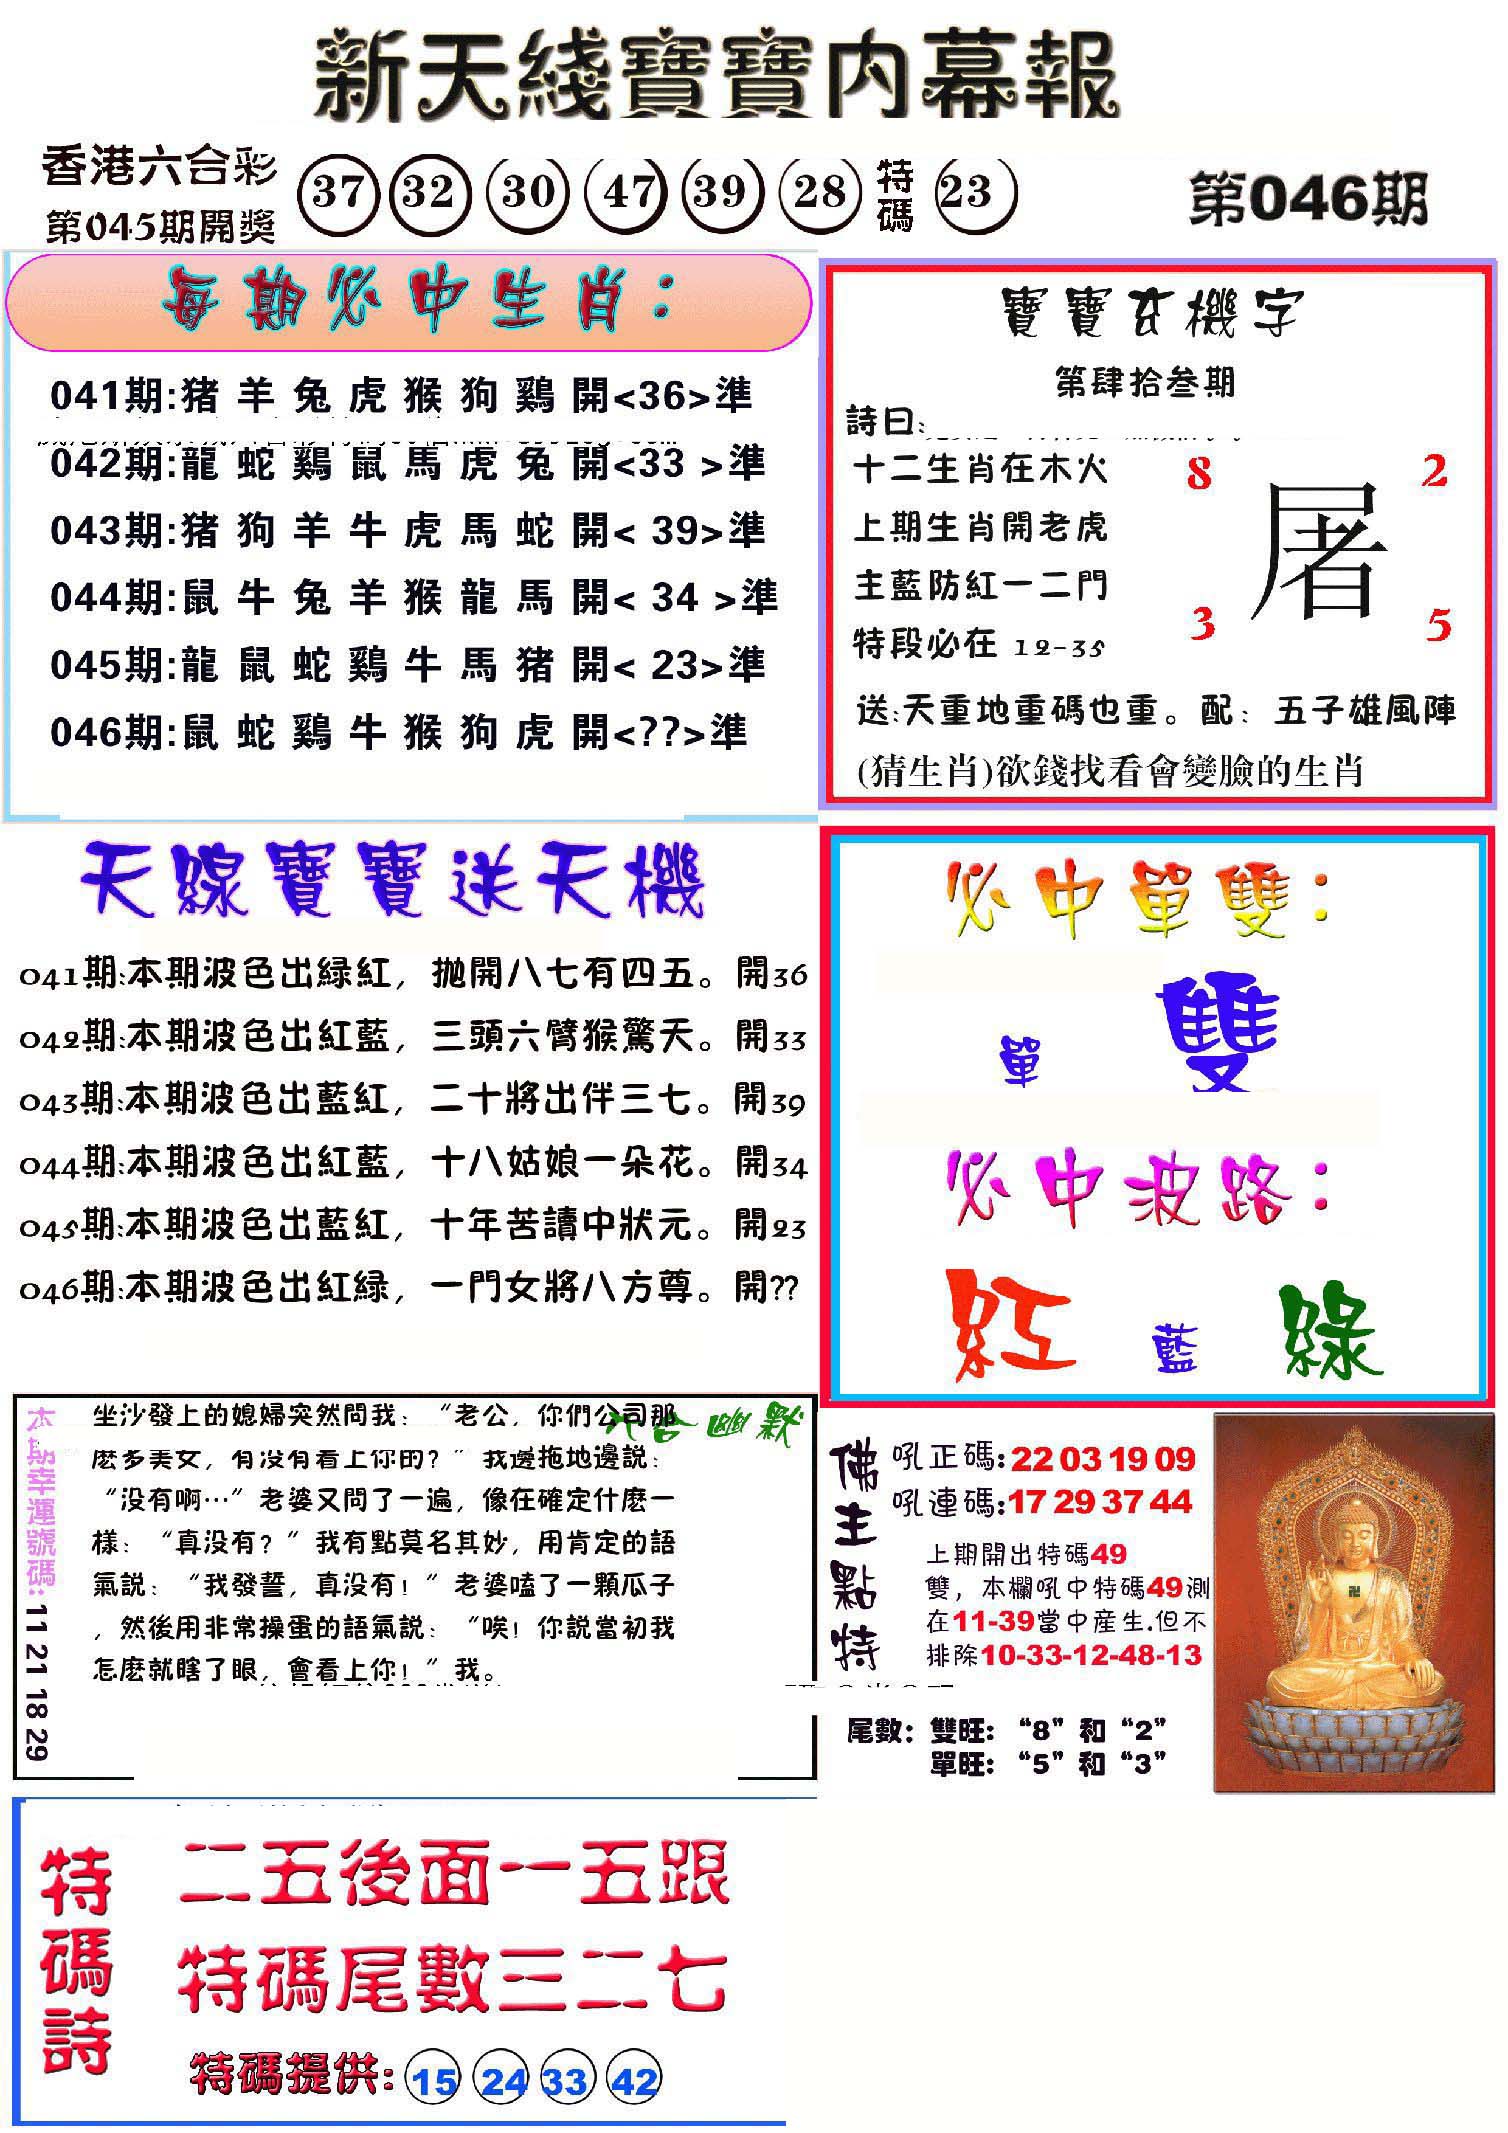 新天綫寶寶內幕報
香港六合彩
第045期開獎
37 32 30 47 39 28 特碼 23
第046期
每期必中生肖：
041期:猪 羊 兔 虎 猴 狗 鷄 開<36>準
042期:龍 蛇 鷄 鼠 馬 虎 兔 開<33 >準
043期:猪 狗 羊 牛 虎 馬 蛇 開< 39>準
044期:鼠 牛 兔 羊 猴 龍 馬 開< 34 >準
045期:龍 鼠 蛇 鷄 牛 馬 猪 開< 23>準
046期:鼠 蛇 鷄 牛 猴 狗 虎 開<??>準
寶寶玄機字
第肆拾叁期
詩曰:
十二生肖在木火
上期生肖開老虎
主藍防紅一二門
特段必在 12-35
8 2
屠
3 5
送:天重地重碼也重。配：五子雄風陣
(猜生肖)欲錢找看會變臉的生肖
天線寶寶送天機
041期:本期波色出緑紅，抛開八七有四五。開36
042期:本期波色出紅藍，三頭六臂猴驚天。開33
043期:本期波色出藍紅，二十將出伴三七。開39
044期:本期波色出紅藍，十八姑娘一朵花。開34
045期:本期波色出藍紅，十年苦讀中狀元。開23
046期:本期波色出紅緑，一門女將八方尊。開??
必中單雙：
單 雙
必中波路：
紅 藍 綠
本期幸運號碼:11 21 18 29
六合幽默
坐沙發上的媳婦突然問我：“老公，你們公司那
麽多美女，有没有看上你的？”我邊拖地邊説：
“没有啊…”老婆又問了一遍，像在確定什麽一
樣：“真没有？”我有點莫名其妙，用肯定的語
氣説：“我發誓，真没有！”老婆嗑了一顆瓜子
，然後用非常操蛋的語氣説：“唉！你説當初我
怎麽就瞎了眼，會看上你！”我。
佛主點特
吼正碼:22 03 19 09
吼連碼:17 29 37 44
上期開出特碼49
雙，本欄吼中特碼49測
在11-39當中産生.但不
排除10-33-12-48-13
尾數：雙旺：“8”和“2”
單旺：“5”和“3”
特碼詩
二五後面一五跟
特碼尾數三二七
特碼提供: 15 24 33 42